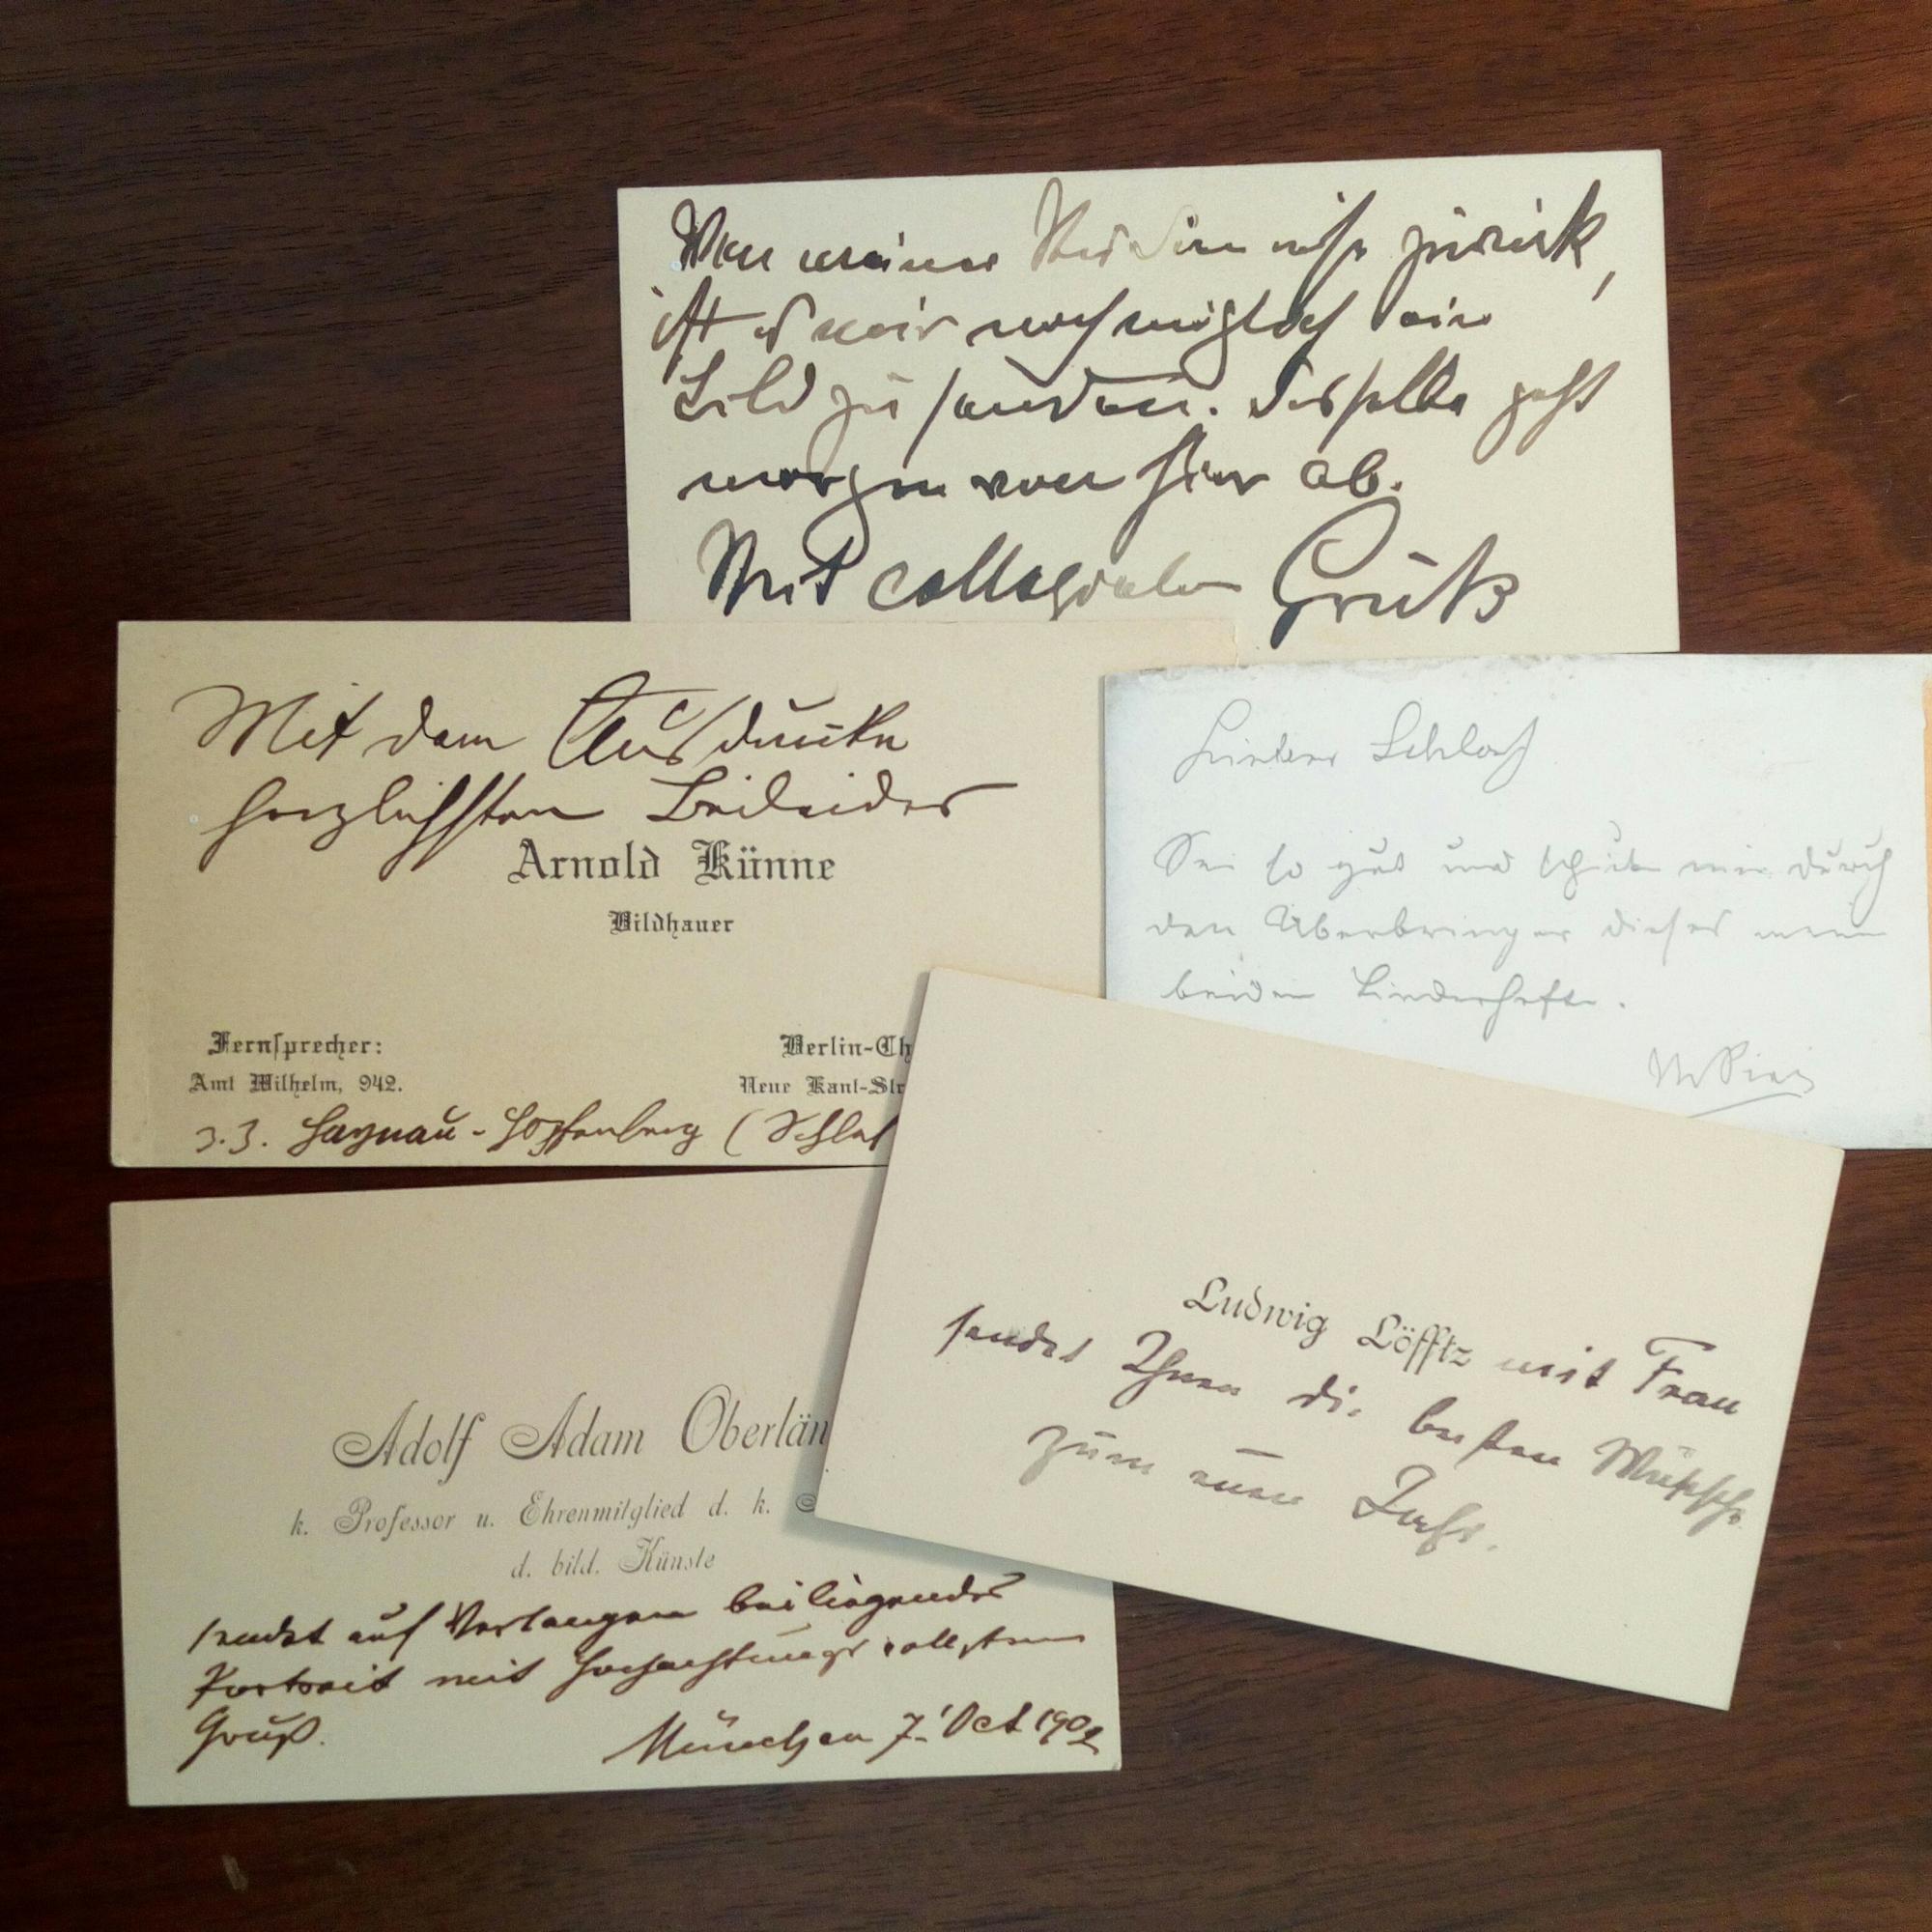 Von meiner Studienreise zurück,
ist es mir noch möglich ein
Bild zu senden. Dasselbe geht
morgen von hier ab.
Mit collegialem Gruß
Mit dem Ausdrucke
herzlichsten Beileides
Arnold Künne
Bildhauer
Fernsprecher:
Amt Wilhelm, 942.
Berlin-Ch
Neue Kant-Str
z.Z. Haynau-Hopfenberg (Schles
Lieber Schlaf
Sei so gut und schicke mir durch
den Überbringer dieses meine
beiden Liederhefte.
Ludwig Löfftz mit Frau
sendet Ihnen die besten Wünsche
zum neuen Jahr.
Adolf Adam Oberlän
k. Professor u. Ehrenmitglied d. k.
d. bild. Künste
sendet auf Verlangen beiliegendes
Portrait mit hochachtungsvollstem
Gruß.
München 7. Oct 1902